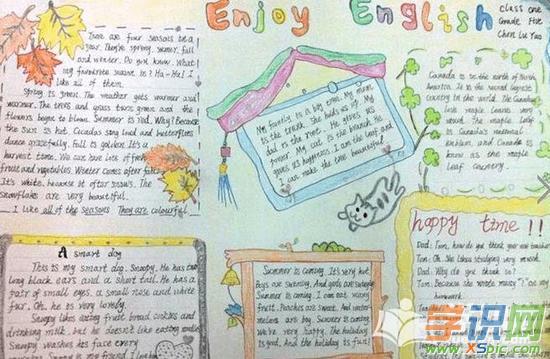 Enjoy English
Class one
Grade Five
Chen Lu Yao
There are four seasons in a
year. They're spring, summer, fall
and winter. Do you know. What
my favourite season is? Ha-Ha! I
like all of them.
Spring is green. The weather gets warmer and
warmer. The trees and grass turn green and the
flowers begin to bloom. Summer is red. Why? Because
the sun is hot. Cicadas sing loud and butterflies
dance gracefully. Fall is golden. It's a
harvest time. We can have lots of fresh
fruits and vegetables. Winter comes after fall.
It's white, because it often snows. The
snowflakes are very beautiful.
I like all of the seasons They are colourful.
My family is a big tree. My mum
is the trunk. She holds us up. My
dad is the root. He gives us
power. My cat is the branch. He
gives us happiness. I am the leaf and
I can make the tree beautiful.
Canada is in the north of North
America. It is the second largest
country in the world. The Canadian
the maple leaf
is Canada's national
emblem, and Canada is
know as the maple
leaf country.
A smart dog
This is my smart dog. Snoopy. He has two
long black ears and a short tail. He has a
pair of small eyes, a small nose and white
fur. Oh, he is very lovely.
Snoopy likes eating fruit bread cookies and
drinking milk, but he doesn't like eating
Snoopy washes his face every
Snoopy is my friend I love him
Summer is coming. It's very hot.
Boys are swimming. And girls are swimming
Summer is coming. I can eat many
fruit. Peaches are sweet. And water-
melons are big. Summer is coming
we're very happy. The holiday
is good, And the holiday is fun!
happy time!!
Dad: Tom, how do you think your new teacher
Tom: Oh. She likes studying very much.
Dad: Why do you think so?
Tom: Because she wrote many "x" on my
homework.
Dad:
学识网
www.xSpic.com